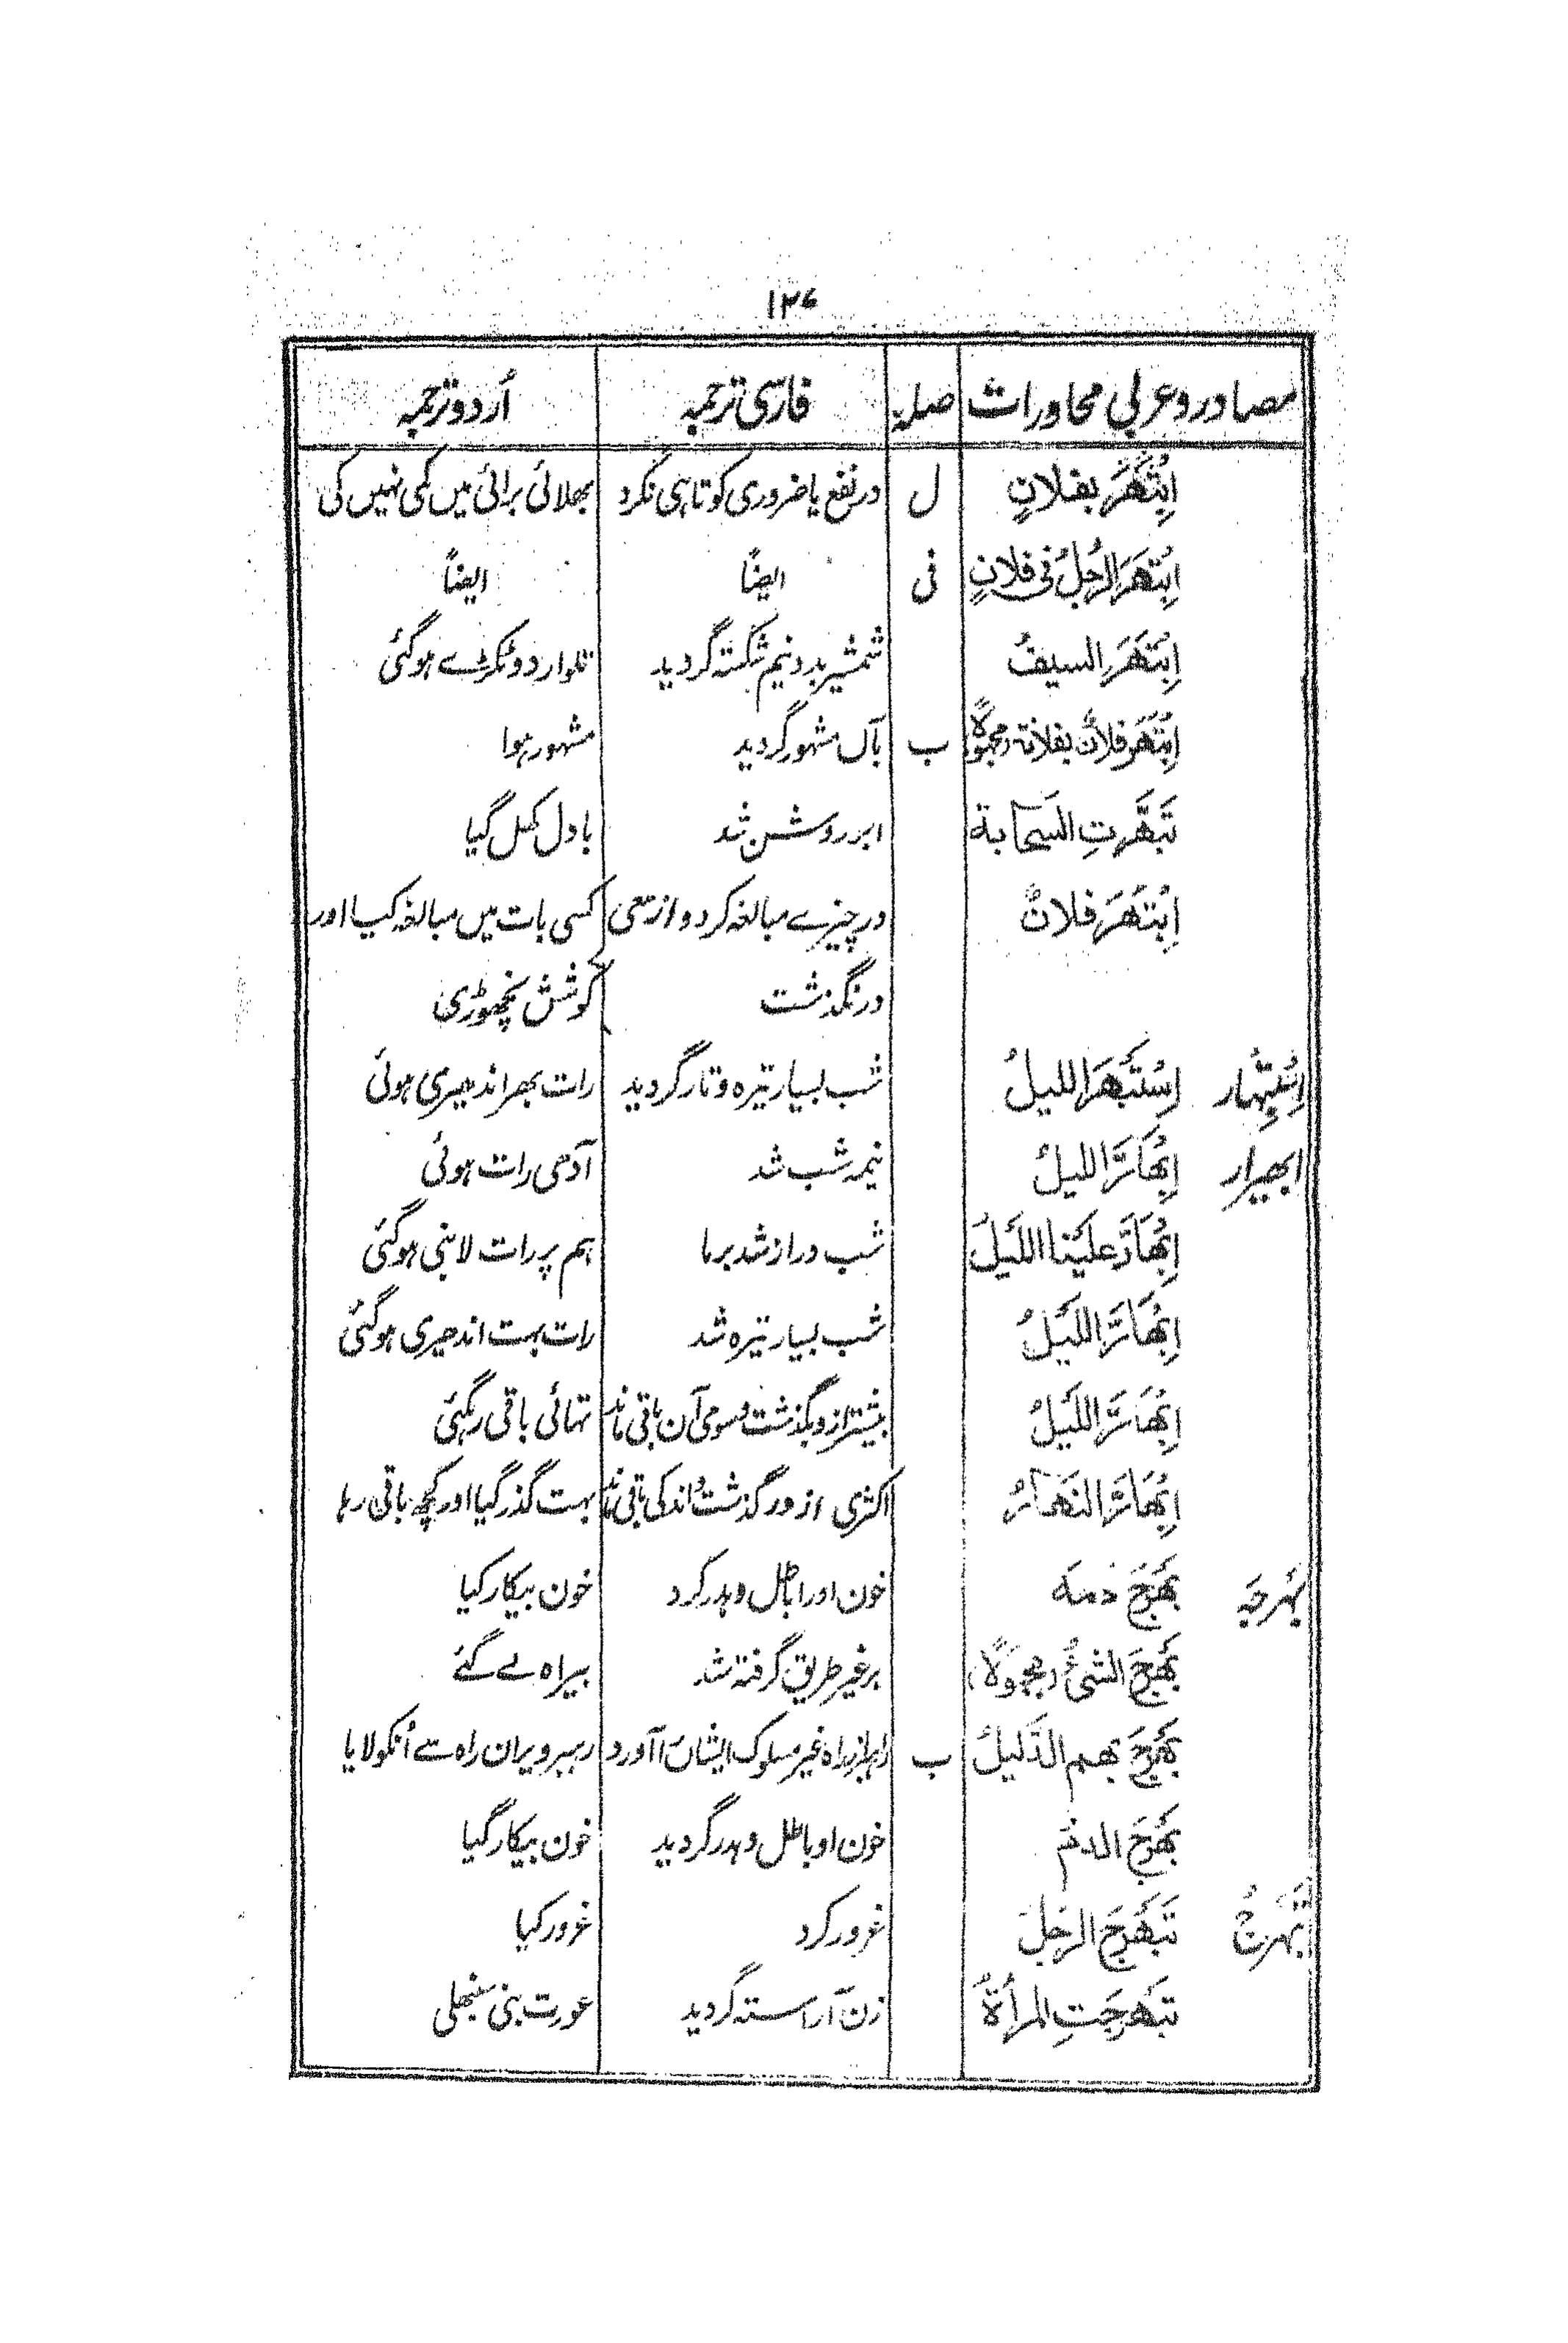 ۱۲۷
مصادر وعربی محاورات صلہ فارسی ترجمہ اُردو ترجمہ
اِبْتَهَرَ بفلانٍ ل در نفع یا ضروری کوتاہی نکرد بھلائی برائی میں کمی نہیں کی
اِبْتَهَرَ الرجُلُ فی فلانٍ فی ایضاً ایضاً
اِبْتَهَرَ السیفُ شمشیر بدو نیم شکستہ گردید تلوار دو ٹکڑے ہوگئی
اِبْتُهِرَ فلانٌ بفلانة (مجہولاً) ب بآں مشہور گردید مشہور ہوا
تَبَهَّرَتِ السَّحَابة ابر روشن شد بادل کھل گیا
اِبْتَهَرَ فلانٌ در چیزے مبالغہ کرد و از سعی کسی بات میں مبالغہ کیا اور
درنگذشت کوشش نچھوڑی
اِسْتِبْہار اِسْتَبْهَرَ اللیلُ شب بسیار تیرہ و تار گردید رات بھر اندھیری ہوئی
ابهیرار اِبْهَارَّ اللیلُ نیمہ شب شد آدھی رات ہوئی
اِبْهَارَّ عَلَیْنا اللَّیلُ شب دراز شد برما ہم پر رات لانبی ہوگئی
اِبْهَارَّ اللَّیلُ شب بسیار تیرہ شد رات بہت اندھیری ہوگئی
اِبْهَارَّ اللَّیلُ بیشتر ازو بگذشت و سومی آن باقی ماند تہائی باقی رہگئی
اِبْهَارَّ النَّهَارُ اکثری از ور گذشت و اندکی باقی ماند بہت گذر گیا اور کچھ باقی رہا
بَہرجَہ بَهْرَجَ دمَه خون اورا باطل و ہدر کرد خون بیکار کیا
بُهْرِجَ الشیُٔ (مجہولاً) بر غیر طریق گرفتہ شد بیراہ لے گئے
بَهْرَجَ بهم الدَّلیلُ ب راہبر از راہ غیر مسلوک ایشاں را آورد رہبر ویران راہ سے اُنکو لایا
بَهْرَجَ الدمُ خون او باطل و ہدر گردید خون بیکار گیا
تَبَہْرُجٌ تَبَهْرَجَ الرجُلُ غرور کرد غرور کیا
تبَهْرجَتِ المرأةُ زن آراستہ گردید عورت بنی سنبھلی